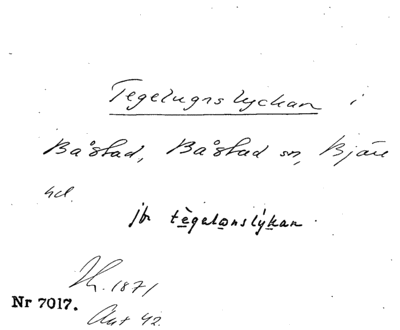 Tegelugnslyckan i
Båstad, Båstad sn, Bjäre
hd.
jb tègalonslýkan.
1871
Nr 7017.
42